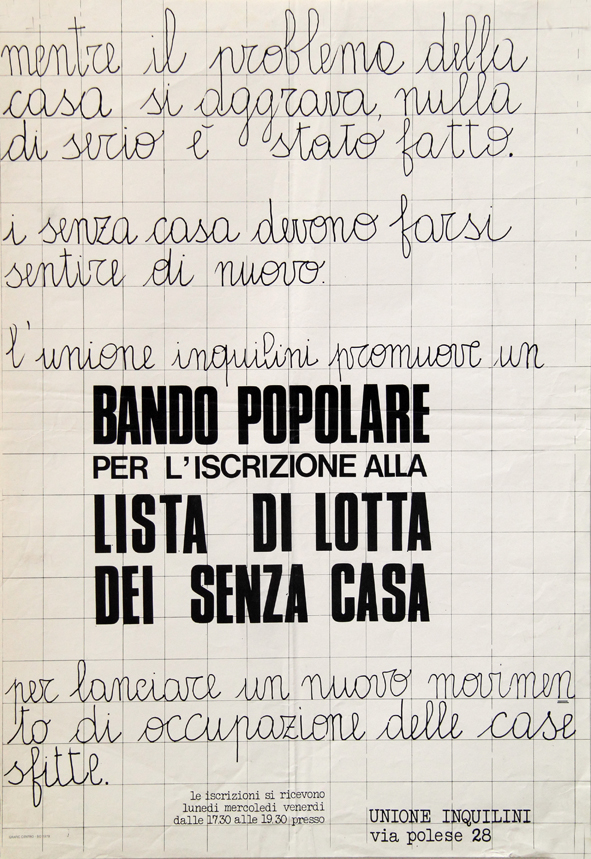 mentre il problema della
casa si aggrava, nulla
di serio è stato fatto.
i senza casa devono farsi
sentire di nuovo.
l'unione inquilini promuove un
BANDO POPOLARE
PER L'ISCRIZIONE ALLA
LISTA DI LOTTA
DEI SENZA CASA
per lanciare un nuovo movimen
to di occupazione delle case
sfitte.
le iscrizioni si ricevono
lunedi mercoledi venerdi
dalle 17.30 alle 19.30 presso
UNIONE INQUILINI
via polese 28